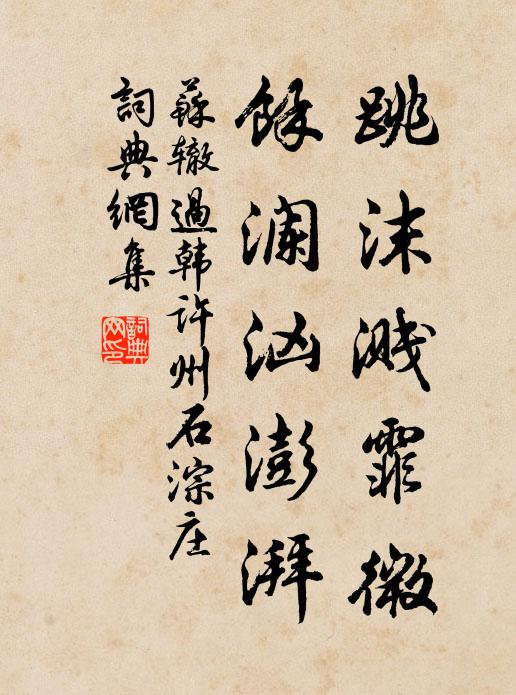 跳沫溅霏微
馀澜汹澎湃
苏辙過韩许州石淙庄
詞典網集
詞典網印